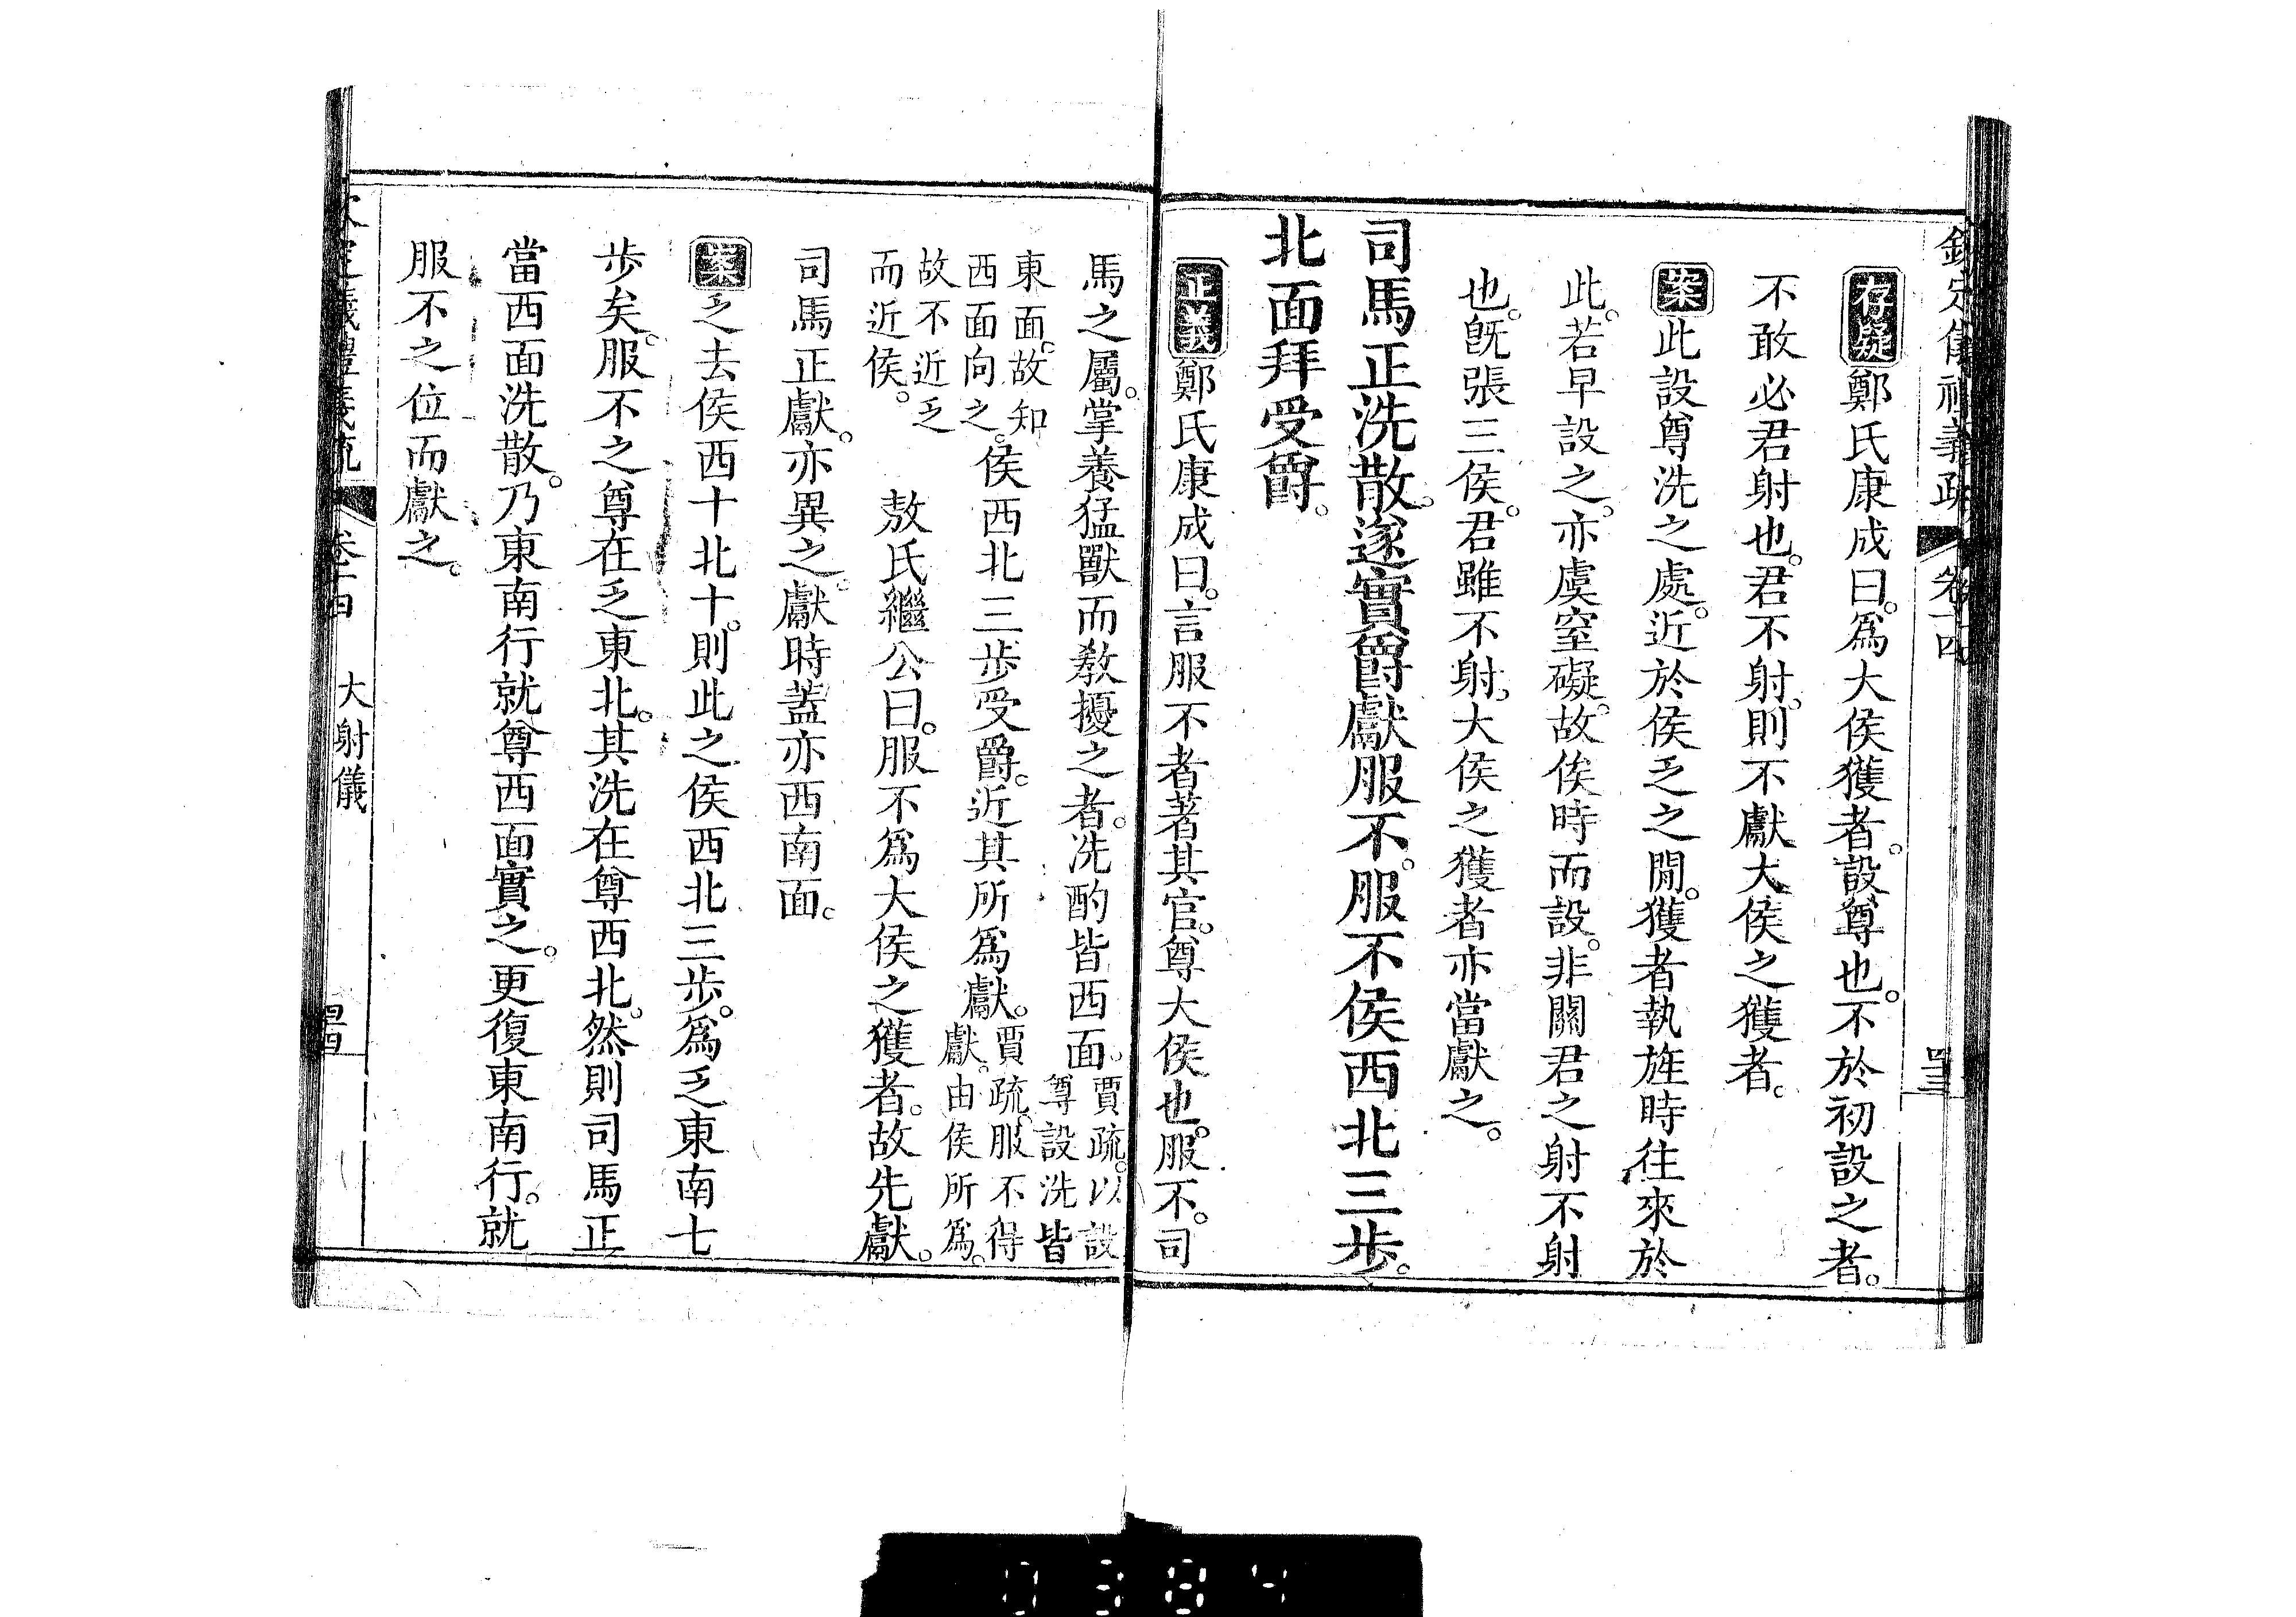 欽定儀禮義疏 卷十四 四三
存疑鄭氏康成曰。爲大侯獲者。設尊也。不於初設之者。
不敢必君射也。君不射。則不獻大侯之獲者。
案此設尊洗之處。近於侯乏之閒。獲者執旌時往來於
此。若早設之。亦虞窒礙。故俟時而設。非關君之射不射
也。旣張三侯。君雖不射。大侯之獲者亦當獻之。
司馬正洗散。遂實爵獻服不。服不侯西北三步。
北面拜受爵。
正義鄭氏康成曰。言服不者著其官。尊大侯也。服不。司
馬之屬。掌養猛獸而敎擾之者。洗酌皆西面。賈疏。以設
尊設洗皆
東面。故知
西面向之。侯西北三步受爵。近其所爲獻。賈疏。服不得
獻。由侯所爲。
故不近乏
而近侯。 敖氏繼公曰。服不爲大侯之獲者。故先獻。
司馬正獻。亦異之。獻時蓋亦西南面。
案乏去侯西十北十。則此之侯西北三步。爲乏東南七
步矣。服不之尊在乏東北。其洗在尊西北。然則司馬正
當西面洗散。乃東南行就尊西面實之。更復東南行。就
服不之位而獻之。
欽定儀禮義疏 卷十四 大射儀 四四
0384